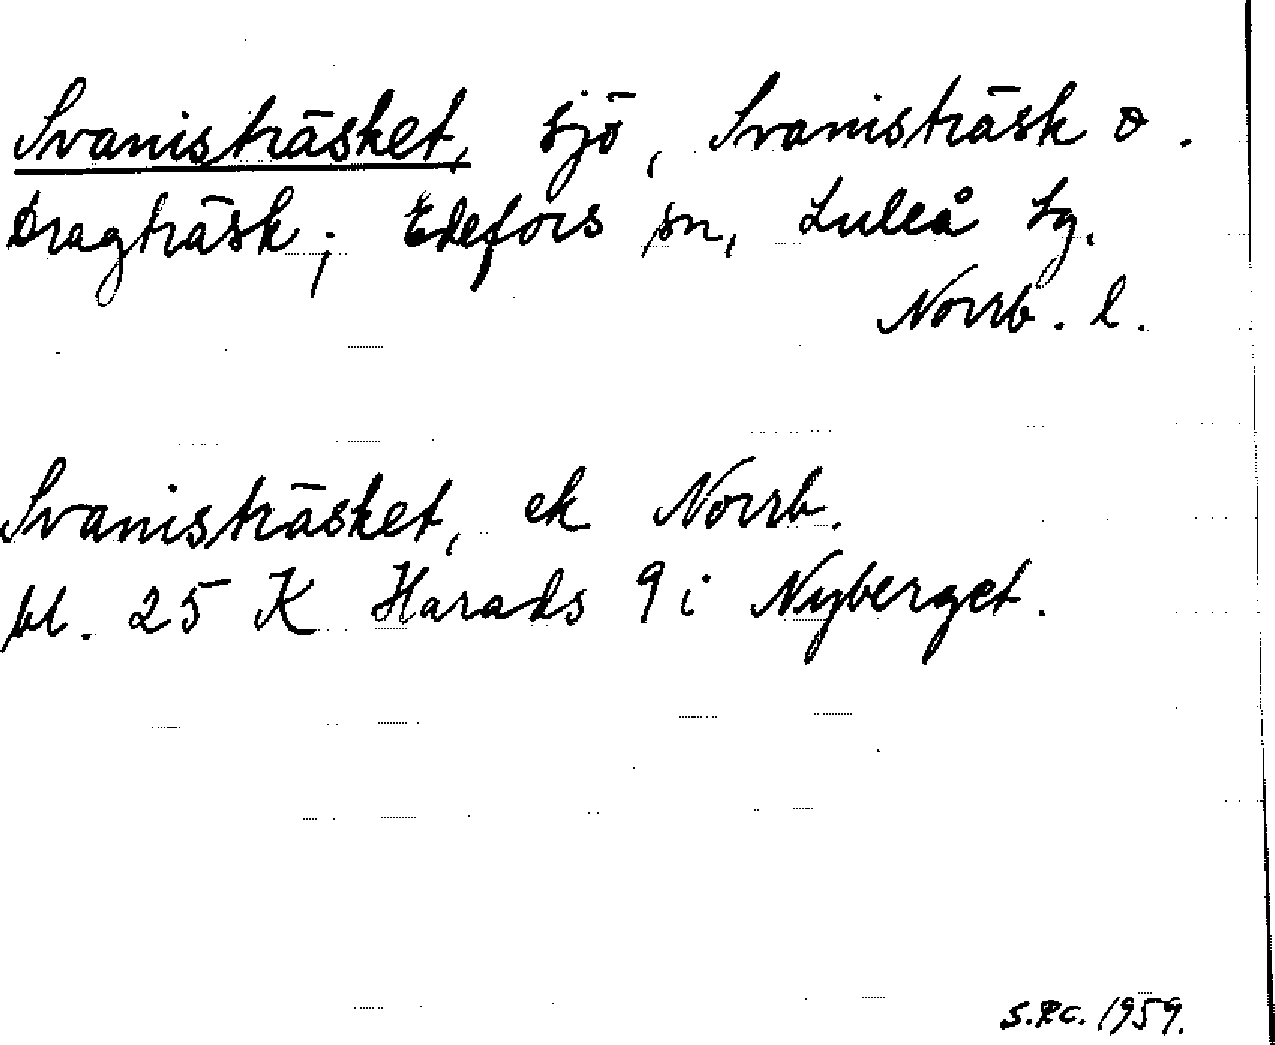 Svanisträsket, sjö, Svanisträsk o.
Dragträsk; Edefors sn, Luleå tg.
Norrb. l.
Svanisträsket, ek Norrb.
bl. 25 K Harads 9 i Nyberget.
S.R.C. 1959.